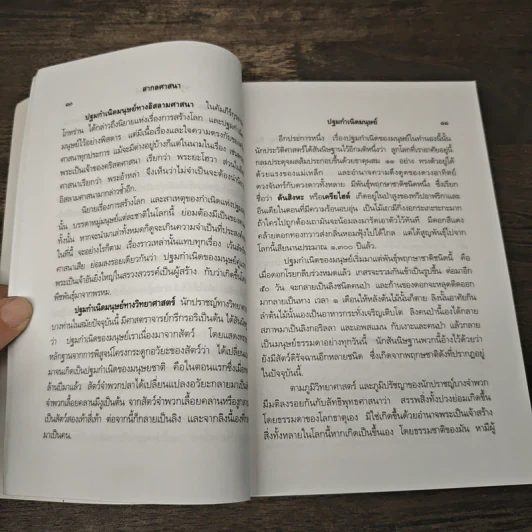 ๑๐
สากลศาสนา
ปฐมกำเนิดมนุษย์ทางอิสลามศาสนา ในคัมภีร์กุ
โกหร่าน ได้กล่าวถึงนิยายแห่งเรื่องการสร้างโลก และปฐมกำเนิด
มนุษย์ไว้อย่างพิสดาร แต่มีเนื้อเรื่องและใจความตรงกับของ
ศาสนาทุกประการ แม้จะมีต่างอยู่บ้างก็แต่ในนามในเรื่อง เช่น
พระเป็นเจ้าของคริสตศาสนา เรียกว่า พระยะโฮวา ส่วนใน
ศาสนาเรียกว่า พระอ้าหล่า จึงเห็นว่าไม่จำเป็นจะต้องนำ
อิสลามศาสนามากล่าวซ้ำอีก
นิยายเรื่องการสร้างโลก และสาเหตุของกำเนิดแห่งปฐม
นั้น บรรดาหมู่มนุษย์แต่ละชาติในโลกนี้ ย่อมต้องมีเป็นของตน
ทั้งนั้น หากจะนำมาทั้งหมดก็ดูจะเกินความจำเป็นที่ประสงค์
ในที่นี้ จะอย่างไรก็ตาม เรื่องราวเหล่านในแทบทุกเรื่อง เว้น
ศาสนาเสีย ย่อมลงรอยเดียวกันว่า ปฐมกำเนิดของมนุษย์
พระเป็นเจ้าอันยิ่งใหญ่ในสรวงสวรรค์เป็นผู้สร้าง กับว่าเกิดขึ้น
พืชพันธุ์มาจากพรหม.
ปฐมกำเนิดมนุษย์ทางวิทยาศาสตร์ นักปราชญ์ทางวิทยา
บางท่านในสมัยปัจจุบันนี้ มีศาสตราจารย์กรีการอวิเป็นต้น ได้สันนิษ
ว่า ปฐมกำเนิดของมนุษย์เราเนื่องมาจากสัตว์ โดยแสดง
หลักฐานจากการพิสูจน์โครงกระดูกอวัยวะของสัตว์ว่า ได้เปลี่ยน
มาจนเกิดเป็นปฐมกำเนิดของมนุษยชาติ คือในตอนแรกซึ่งเมื่อ
ล้านปีมาแล้ว สัตว์จำพวกปลาได้เปลี่ยนแปลงอวัยวะกลายมาเป็น
จำพวกเลื้อยคลานมีงูเป็นต้น จากสัตว์จำพวกเลื้อยคลานหรืองูกลาย
เป็นสัตว์สองเท้าสี่เท้า ต่อจากนี้ก็กลายเป็นลิง และจากลิงนี้เองก็
มาเป็นคน.
ปฐมกำเนิดมนุษย์
๑๑
อีกประการหนึ่ง เรื่องปฐมกำเนิดของมนุษย์ในทำนองนี้นั้น
นักประวัติศาสตร์ได้สันนิษฐานไว้อีกอย่างหนึ่งว่า ลูกโลกที่เราอาศัยอยู่นี้
กลมประดุจผลส้มประกอบขึ้นด้วยธาตุผสม ๑๑ อย่าง ทรงตัวอยู่ได้
ด้วยแรงของแม่เหล็ก และอำนาจความดึงดูดของดวงอาทิตย์
ดวงจันทร์กับดวงดาวทั้งหลาย มีพันธุ์พฤกษาชาติชนิดหนึ่ง ซึ่งเรียก
ชื่อว่า ต้นสิงหะ หรือเครือไฮด์ เกิดอยู่ในป่าสูงของทวีปอาฟริกาและ
อินเดียในตอนที่มีความร้อนอบอุ่น เป็นไม้เถามีกิ่งงอกกะกะระกะมาก
ถ้าใครไปถูกต้องเถามันจะน้อมลงมารัดเอาตัวไว้ทันที มีดอกสีแดง
คล้ายดอกทองกวาวส่งกลิ่นหอมฟุ้งไปได้ไกล แต่ได้สูญพันธุ์ไปจาก
โลกนี้เสียนานประมาณ ๑,๓๐๐ ปีแล้ว.
ปฐมกำเนิดของมนุษย์เริ่มมาแต่พันธุ์พฤกษาชาติชนิดนี้ คือ
เมื่อดอกโรยกลีบร่วงหมดแล้ว เกสรจะรวมกันเข้าเป็นรูปขึ้น ต่อมาอีก
๕๐ วัน จะกลายเป็นลิงชนิดคนป่า และก้านของดอกจะหลุดติดออก
มากลายเป็นหาง เวลา ๑ เดือนให้หลังต้นไม้นั้นก็ตาย ลิงนั้นอาศัยกิน
ลำต้นไม้นั้นเองเป็นอาหารกระทั่งเจริญเติบโต ลิงคนป่านี้เองได้กลาย
สภาพมาเป็นลิงกอริลลา และเอพสแมน กับเงาะและคนป่า แล้วกลาย
เป็นมนุษย์ธรรมดาอย่างทุกวันนี้. นักสันนิษฐานพวกนี้อ้างไว้ด้วยว่า
ยังมีสัตว์ดิรัจฉานอีกหลายชนิด ซึ่งเกิดจากพฤกษาชาติดังที่ปรากฏอยู่
ในปัจจุบันนี้.
ตามภูมิวิทยาศาสตร์ และภูมิปรัชญาของนักปราชญ์บางจำพวก
มีมติลงรอยกันกับลัทธิพุทธศาสนาว่า สรรพสิ่งทั้งปวงย่อมเกิดขึ้น
โดยธรรมดาของโลกธาตุเอง มิใช่เกิดขึ้นด้วยอำนาจพระเป็นเจ้าสร้าง
สิ่งทั้งหลายในโลกนี้หากเกิดเป็นขึ้นเอง โดยธรรมชาติของมัน หามีผู้